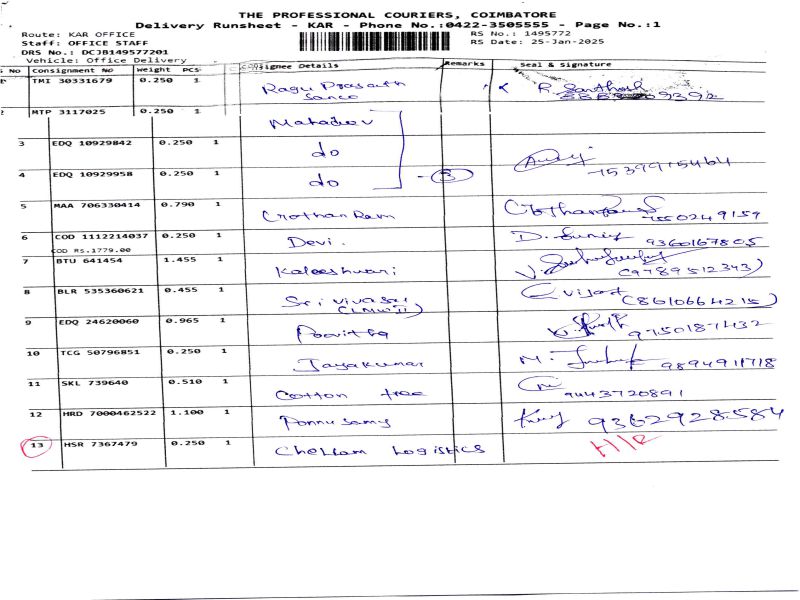 THE PROFESSIONAL COURIERS, COIMBATORE
Delivery Runsheet - KAR - Phone No.:0422-3505555 - Page No.:1
Route: KAR OFFICE RS No.: 1495772
Staff: OFFICE STAFF RS Date: 25-Jan-2025
DRS No.: DCJB149577201
Vehicle: Office Delivery
S No Consignment No Weight PCS Consignee Details Remarks Seal & Signature
TMI 30331679 0.250 1 Ragu Prasath R. Santhosh
2 MTP 3117025 0.250 1 Mahadev
3 EDQ 10929842 0.250 1 do
4 EDQ 10929958 0.250 1 do 3 7539915464
5 MAA 706330414 0.790 1 Crothan Ram 7550249159
6 COD 1112214037 0.250 1 Devi. D. 9360167805
COD RS.1779.00
7 BTU 641454 1.455 1 Kaleeshwari (9789512343)
8 BLR 535360621 0.455 1 Sri Vivasri (8610664215)
9 EDQ 24620060 0.965 1 Poovitha 9750187432
10 TCG 50796851 0.250 1 Jayakumar M. 9894911718
11 SKL 739640 0.510 1 Cotton tree 9443720891
12 HRD 7000462522 1.100 1 Ponnusamy 9362928584
13 HSR 7367479 0.250 1 Chellam Logistics